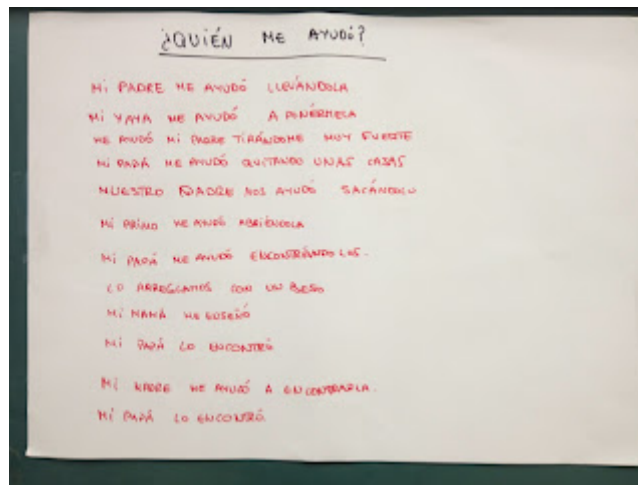 ¿QUIÉN ME AYUDÓ?
MI PADRE ME AYUDÓ LLEVÁNDOLA
MI YAYA ME AYUDÓ A PONÉRMELA
ME AYUDÓ MI PADRE TIRÁNDOME MUY FUERTE
MI PAPÁ ME AYUDÓ QUITANDO UNAS CAJAS
NUESTRO PADRE NOS AYUDÓ SACÁNDOLO
MI PRIMO ME AYUDÓ ABRIÉNDOLA
MI PAPÁ ME AYUDÓ ENCONTRÁNDOLOS.
LO ARREGLAMOS CON UN BESO
MI MAMÁ ME ENSEÑÓ
MI PAPÁ LO ENCONTRÓ
MI MADRE ME AYUDÓ A ENCONTRARLA.
MI PAPÁ LO ENCONTRÓ